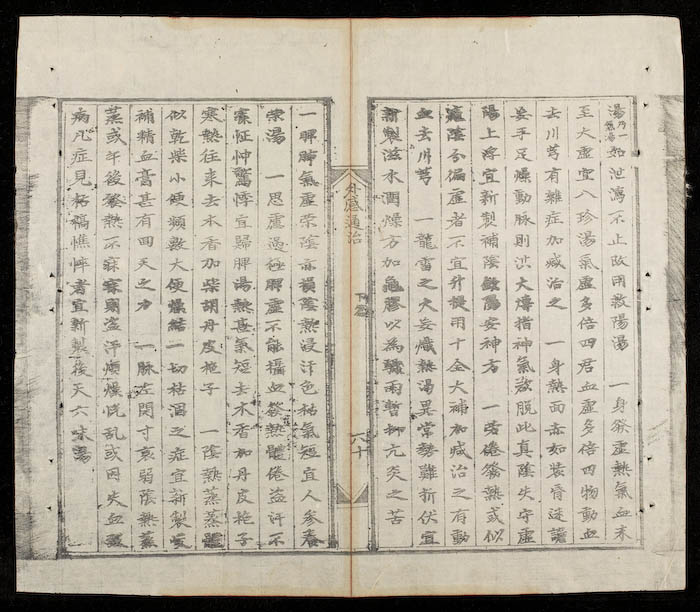 湯如泄瀉不止改用救陽湯 一身發虛熱氣血未
至大虛宜八珍湯氣虛多倍四君血虛多倍四物動血
去川芎有雜症加減治之 一身熱面赤如裝昏迷譫
妄手足燥動脉則洪大傳指神氣欲脫此真陰失守虛
陽上浮宜新製補陰斂陽安神方 一勞倦發熱或似
瘧陰分偏虛者不宜升提用十全大補加減治之有動
血去川芎 一龍雷之火妄熾熱湯異常勢難折伏宜
新製滋水潤燥方加龜膠以為驟雨暫抑亢炎之苦
外感通治
下篇
六十
一脾肺氣虛榮陰亦損陰熱浸汗色枯氣短宜人參養
榮湯 一思慮過極脾虛不能攝血發熱體倦盜汗不
寐怔忡驚悸宜歸脾湯熱甚氣短去木香加丹皮梔子
寒熱往來去木香加柴胡丹皮梔子 一陰熱蒸蒸體
似乾柴小便頻數大便燥結一切枯涸之症宜新製峻
補精血膏甚有回天之力 一脉左関寸衰弱陰熱蒸
蒸或午後發熱不寐寐則盜汗煩燥恍乱或因失血致
病凡症見枯槁憔悴者宜新製後天六味湯